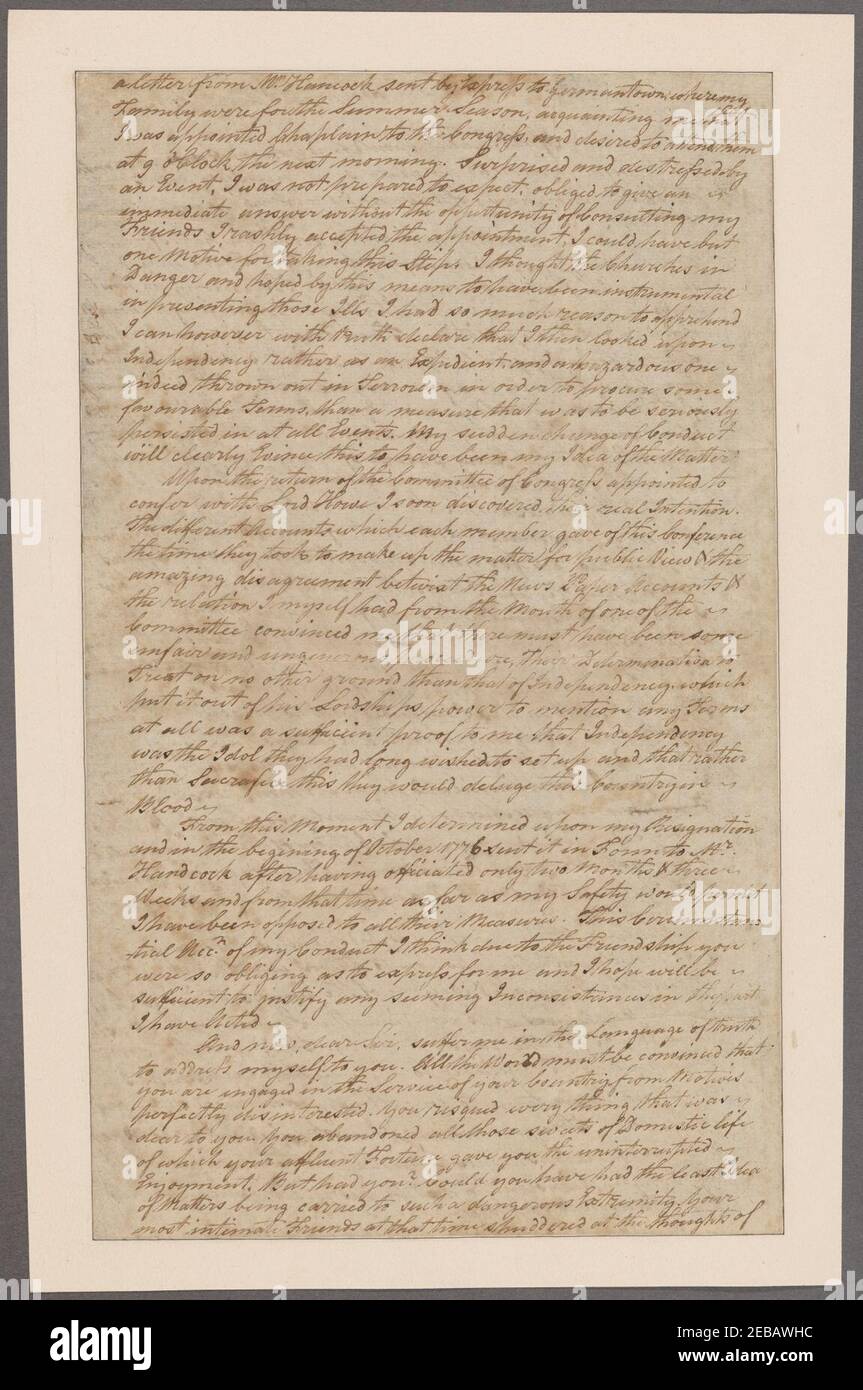 a letter from Mr. Hancock sent by Express to Germantown, where my
Family were for the Summer Season, acquainting me that
I was appointed Chaplain to the Congress, and desired to attend them
at 9 o'Clock the next morning. Surprised and destressed by
an Event, I was not prepared to expect, obliged to give an
immediate answer without the opportunity of Consulting my
Friends I rashly accepted the appointment, I could have but
one Motive for taking this Step. I thought the Churches in
Danger and hoped by this means to have been instrumental
in presenting those Ills I had so much reason to apprehend
I can however with truth declare that I then looked upon
Independency rather as an Expedient, and an hazardous one
indeed thrown out in Terrorem in order to procure some
favourable Terms, than a measure that was to be seriously
persisted in at all Events. My sudden change of Conduct
will clearly Evince this to have been my Idea of the Matter
Upon the return of the Committee of Congress appointed to
confer with Lord Howe I soon discovered their real Intention.
The different Accounts which each member gave of this Conference
the time they took to make up the matter for public View & the
amazing disagreement betwixt the News Paper Accounts &
the relation I myself had from the Mouth of one of the
Committee convinced me that there must have been some
unfair and ungenerous Procedure, Their Determination to
Treat on no other ground than that of Independency, which
put it out of his Lordships power to mention any Terms
at all was a sufficient proof to me that Independency
was the Idol they had long wished to set up and that rather
than Sacrafice this they would deluge this Country in
Blood
From this Moment I determined upon my Resignation
and in the begining of October 1776 sent it in Form to Mr.
Handcock after having officiated only two Months & three
Weeks and from that time as far as my Safety would permit
I have been opposed to all their Measures. This Circumstan
-tial Acct. of my Conduct I think due to the Friendship you
were so obliging as to express for me and I hope will be
sufficient to justify any seeming Inconsistencies in the part
I have Acted
And now, dear Sir, suffer me in the Language of truth
to address myself to you. All the World must be convinced that
you are engaged in the Service of your Country from Motives
perfectly disinterested. You risqued every thing that was
dear to you You abandoned all those sweets of Domestic life
of which your affluent Fortune gave you the uninterrupted
Enjoyment. But had you? Could you have had the least idea
of Matters being carried to such a dangerous Extremity. Your
most intimate Friends at that time shuddered at the thoughts of
alamy
alamy
Image ID: 2EBAWHC
www.alamy.com